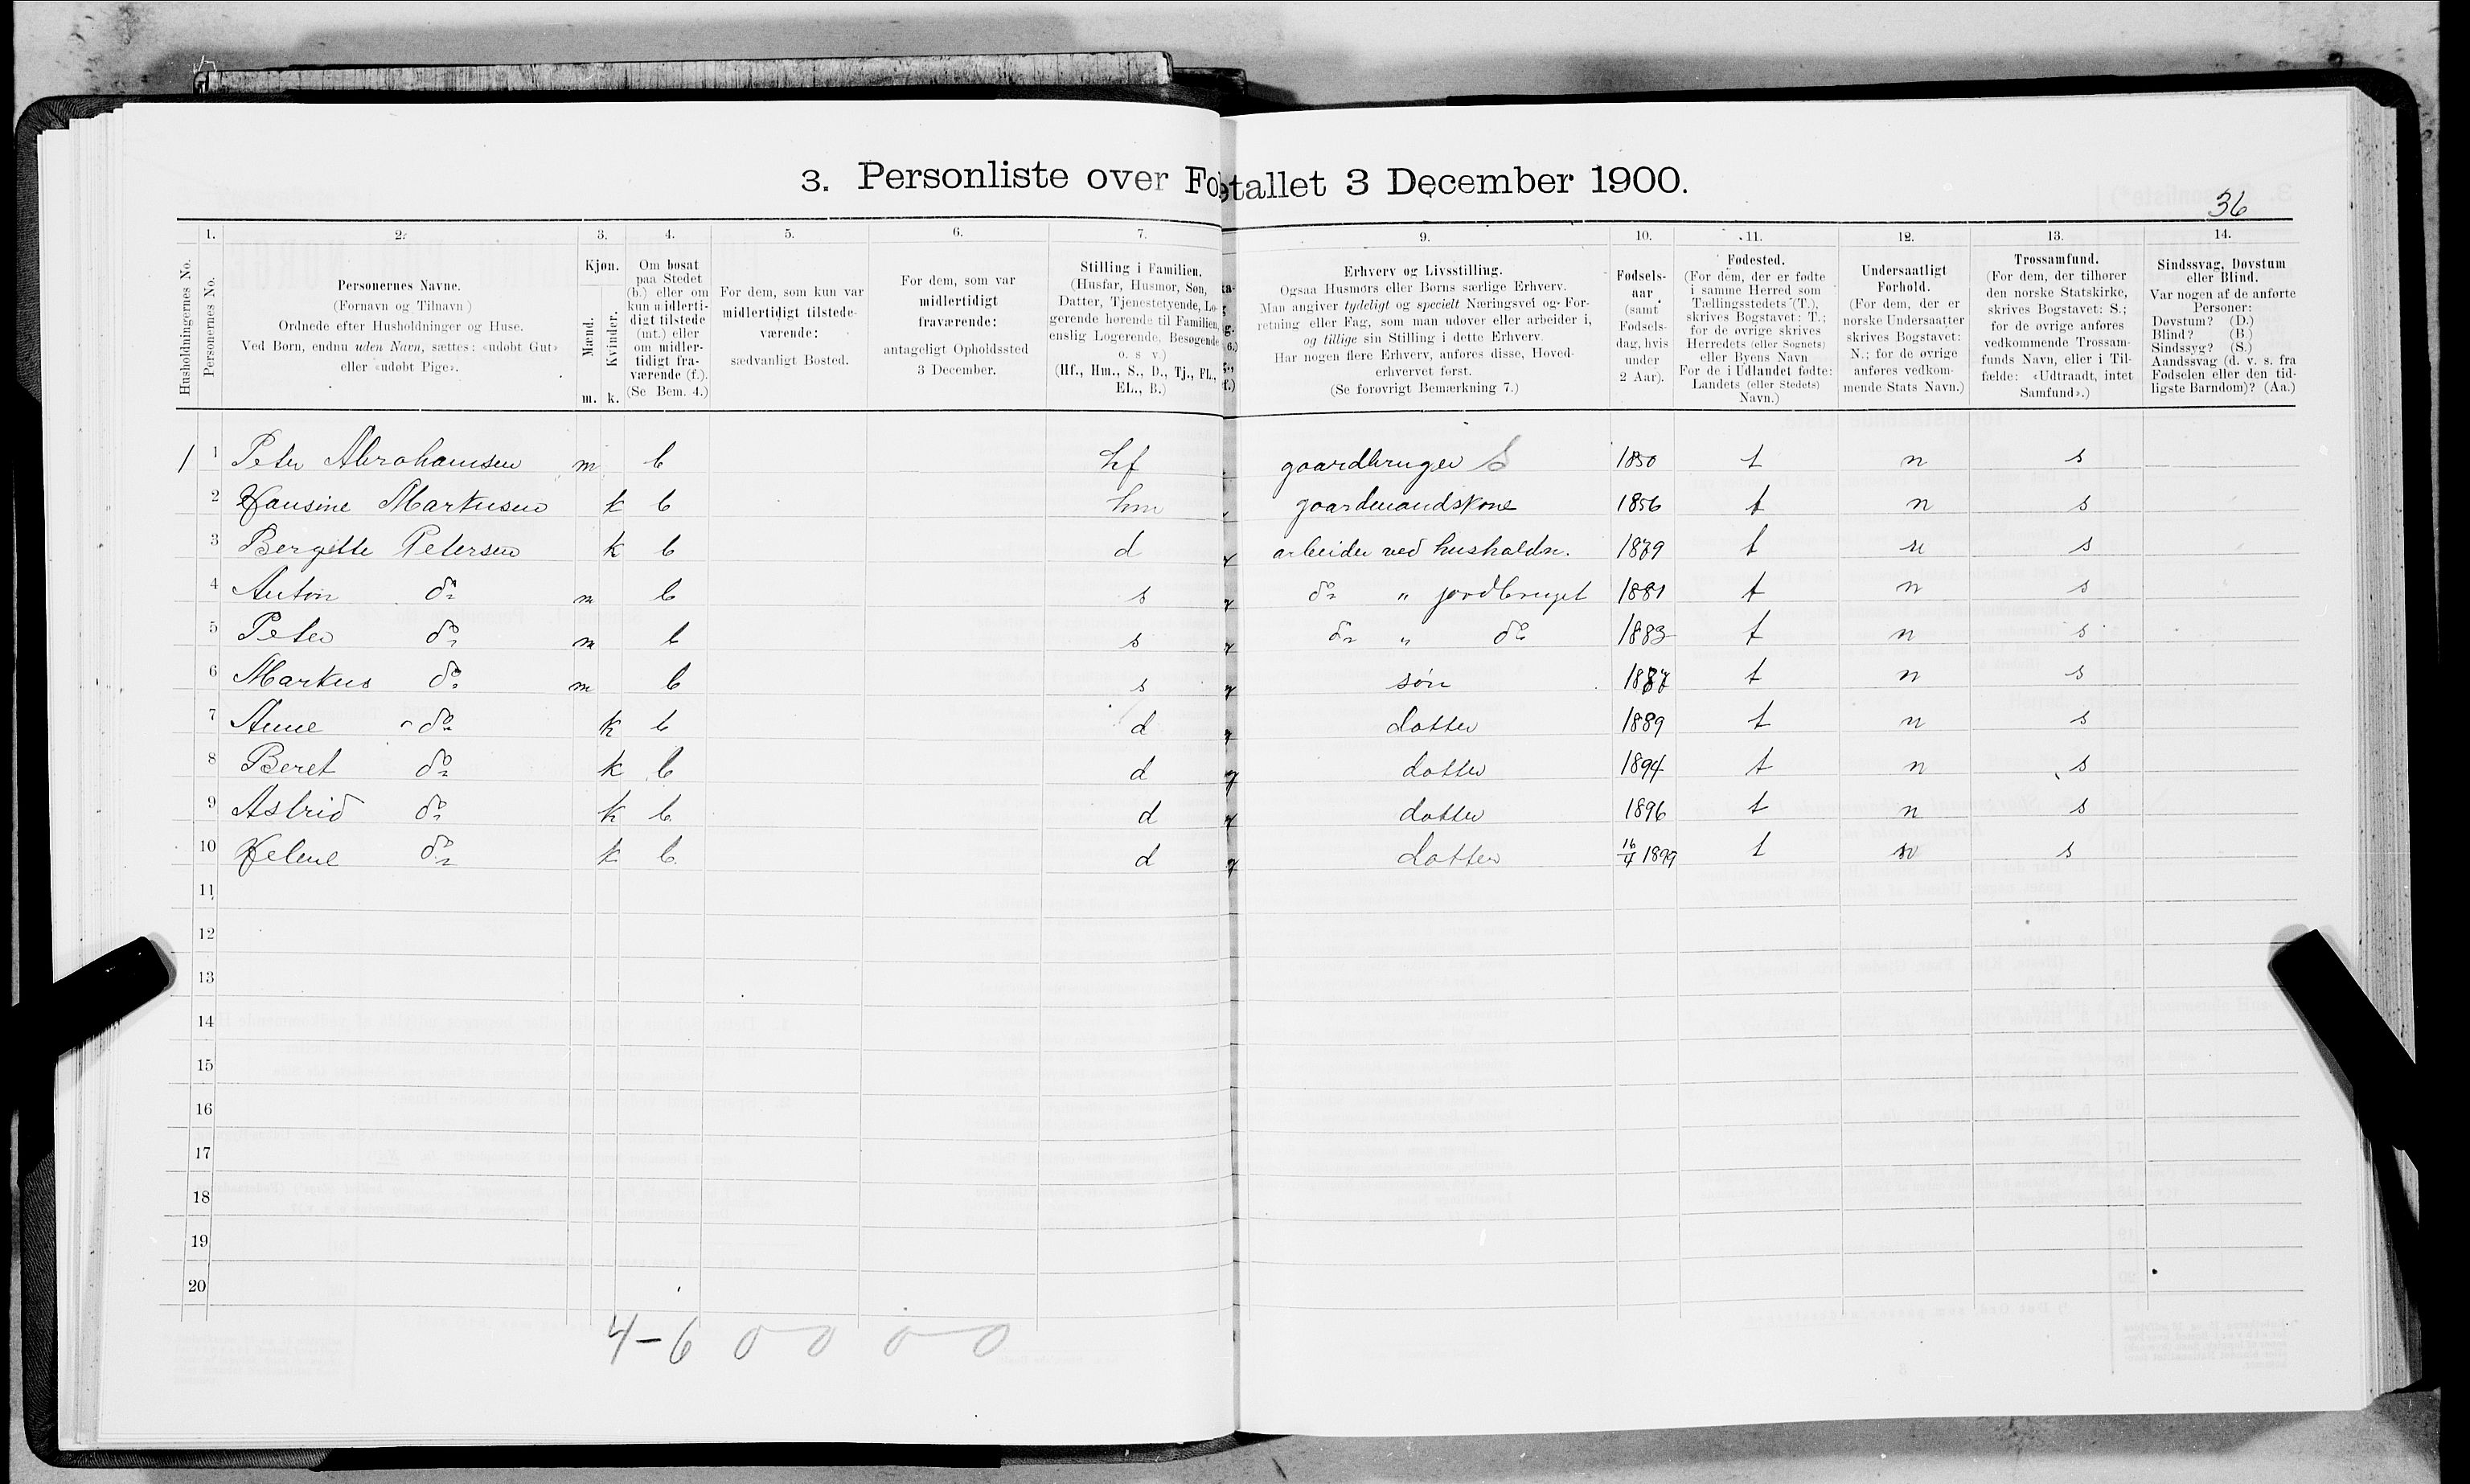 3. Personliste over Fo etallet 3 December 1900.
36
1. 2. 3. 4. 5. 6. 7. 9. 10. 11. 12. 13. 14.
Husholdningernes No.
Personernes No.
Personernes Navne.
(Fornavn og Tilnavn)
Ordnede efter Husholdninger og Huse.
Ved Børn, endnu uden Navn, sættes: «udøbt Gut»
eller «udøbt Pige».
Kjøn.
Mænd.
Kvinder.
m. k.
Om bosat
paa Stedet
(b.) eller om
kun midlerti-
digt tilstede
(mt.) eller
om midler-
tidigt fra-
værende (f.).
(Se Bem. 4.)
For dem, som kun var
midlertidigt tilstede-
værende:
sædvanligt Bosted.
For dem, som var
midlertidigt
fraværende:
antageligt Opholdssted
3 December.
Stilling i Familien.
(Husfar, Husmor, Søn,
Datter, Tjenestetyende, Lo-
gerende hørende til Familien,
enslig Logerende, Besøgende
o. s v.)
(Hf., Hm., S., D., Tj., FL.,
EL., B.)
Erhverv og Livsstilling.
Ogsaa Husmors eller Børns særlige Erhverv.
Man angiver tydeligt og specielt Næringsvei og For-
retning eller Fag, som man udøver eller arbeider i,
og tillige sin Stilling i dette Erhverv.
Har nogen flere Erhverv, anføres disse, Hoved-
erhvervet først.
(Se forøvrigt Bemærkning 7.)
Fødsels-
aar
(samt
Fødsels-
dag, hvis
under
2 Aar).
Fødested.
(For dem, der er fødte
i samme Herred som
Tællingsstedets (T.),
skrives Bogstavet: T.;
for de øvrige skrives
Herredets (eller Sognets)
eller Byens Navn
For de i Udlandet fødte:
Landets (eller Stedets)
Navn.)
Undersaatligt
Forhold.
(For dem, der er
norske Undersaatter
skrives Bogstavet:
N.; for de øvrige
anføres vedkom-
mende Stats Navn.)
Trossamfund.
(For dem, der tilhører
den norske Statskirke,
skrives Bogstavet: S.;
for de øvrige anføres
vedkommende Trossam-
funds Navn, eller i Til-
fælde: «Udtraadt, intet
Samfund».)
Sindssvag, Døvstum
eller Blind.
Var nogen af de anførte
Personer:
Døvstum? (D.)
Blind? (B.)
Sindssyg? (S.)
Aandssvag (d. v. s. fra
Fødselen eller den tid-
ligste Barndom)? (Aa.)
1 1 Peter Abrahamsen m b hf gaardbruger S 1850 t n s
2 Hansine Markusen k b hm gaardmandskone 1856 t n s
3 Bergitte Petersen k b d arbeider ved husholdn. 1879 t n s
4 Anton do m b s do " jordbruget 1881 t n s
5 Peter do m b s do " do 1883 t n s
6 Markus do m b s søn 1887 t n s
7 Anne do k b d datter 1889 t n s
8 Beret do k b d datter 1894 t n s
9 Astrid do k b d datter 1896 t n s
10 Helene do k b d datter 16/4 1899 t n s
11
12
13
14
15
16
17
18
19
20
4-6 0 0 0 0